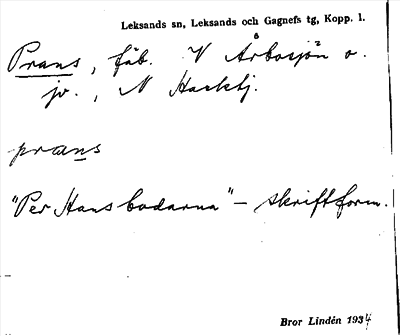 Leksands sn, Leksands och Gagnefs tg, Kopp. l.
Prans, fäb. V Årbosjön o.
jv., N Hackbj.
prans
"Per Hansbodarna" – skriftform.
Bror Lindén 1934